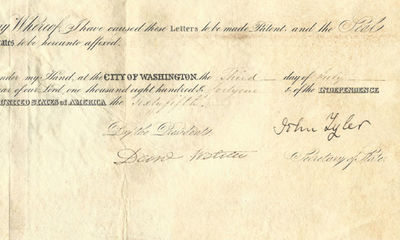 ny Whereof, I have caused these Letters to be made Patent, and the Seal
tates to be hereunto affixed.
nder my Hand, at the CITY OF WASHINGTON, the Third day of July
ear of our Lord, one thousand eight hundred & fortyone & of the INDEPENDENCE
UNITED STATES of AMERICA the Sixty fifth.
By the President John Tyler
Webster Secretary of State.